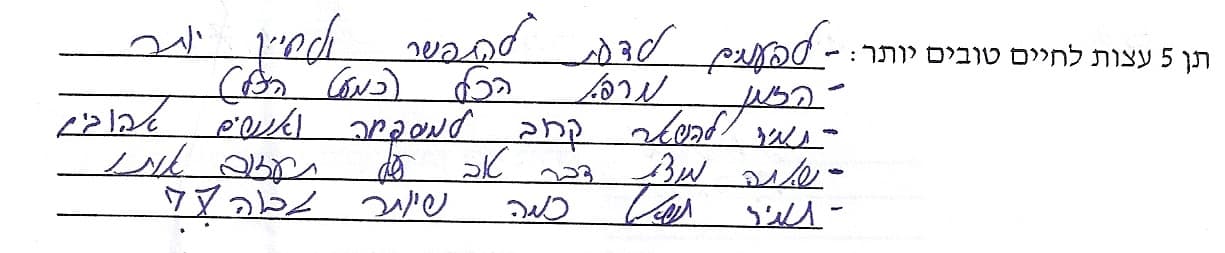 תן 5 עצות לחיים טובים יותר: - לפעמים לדעת להתפשר ולחייך יותר
- הזמן מרפא הכל (כמעט הכל)
- תמיד להשאר קרוב למשפחה ואנשים אהובים
- שאתה מוצא דבר טוב אל תעזוב אותו
- תמיד תשאף כמה שיותר גבוה